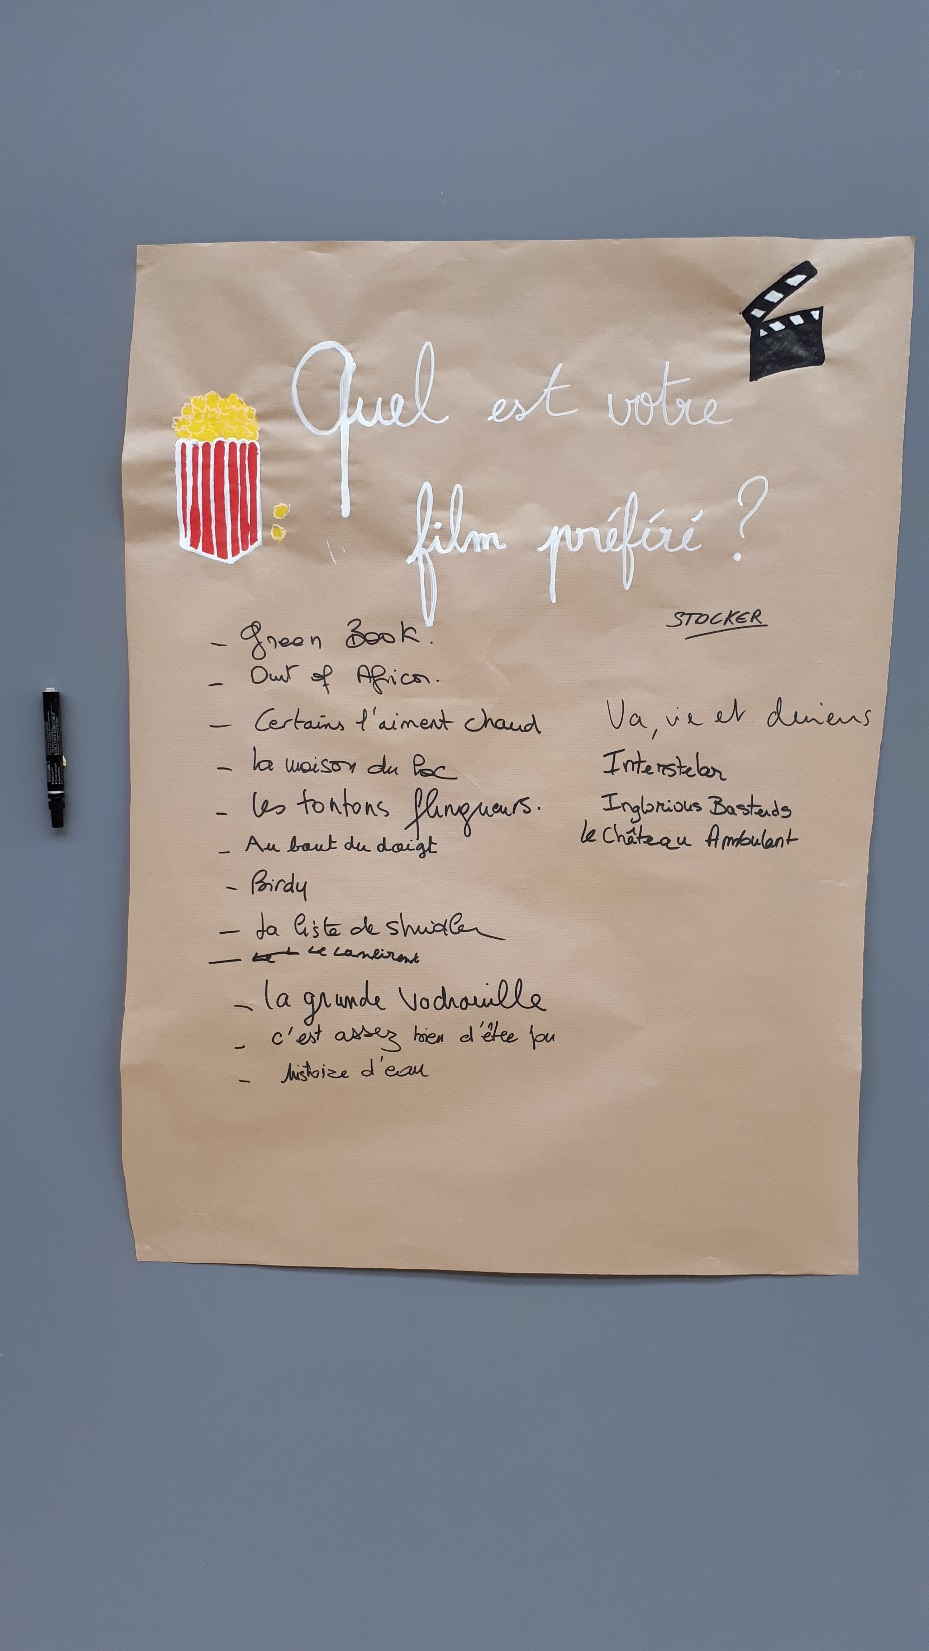 Quel est votre
film préféré ?
- Green Book.
- Out of Africa.
- Certains l'aiment chaud
- La maison du lac
- Les tontons flingueurs.
- Au bout du doigt
- Birdy
- La liste de
- Le
- La grande Vadrouille
- c'est assez bien d'être fou
- histoire d'eau
STOCKER
Va, vie et deviens
Interstelar
Inglorious Basterds
Le Château Ambulant